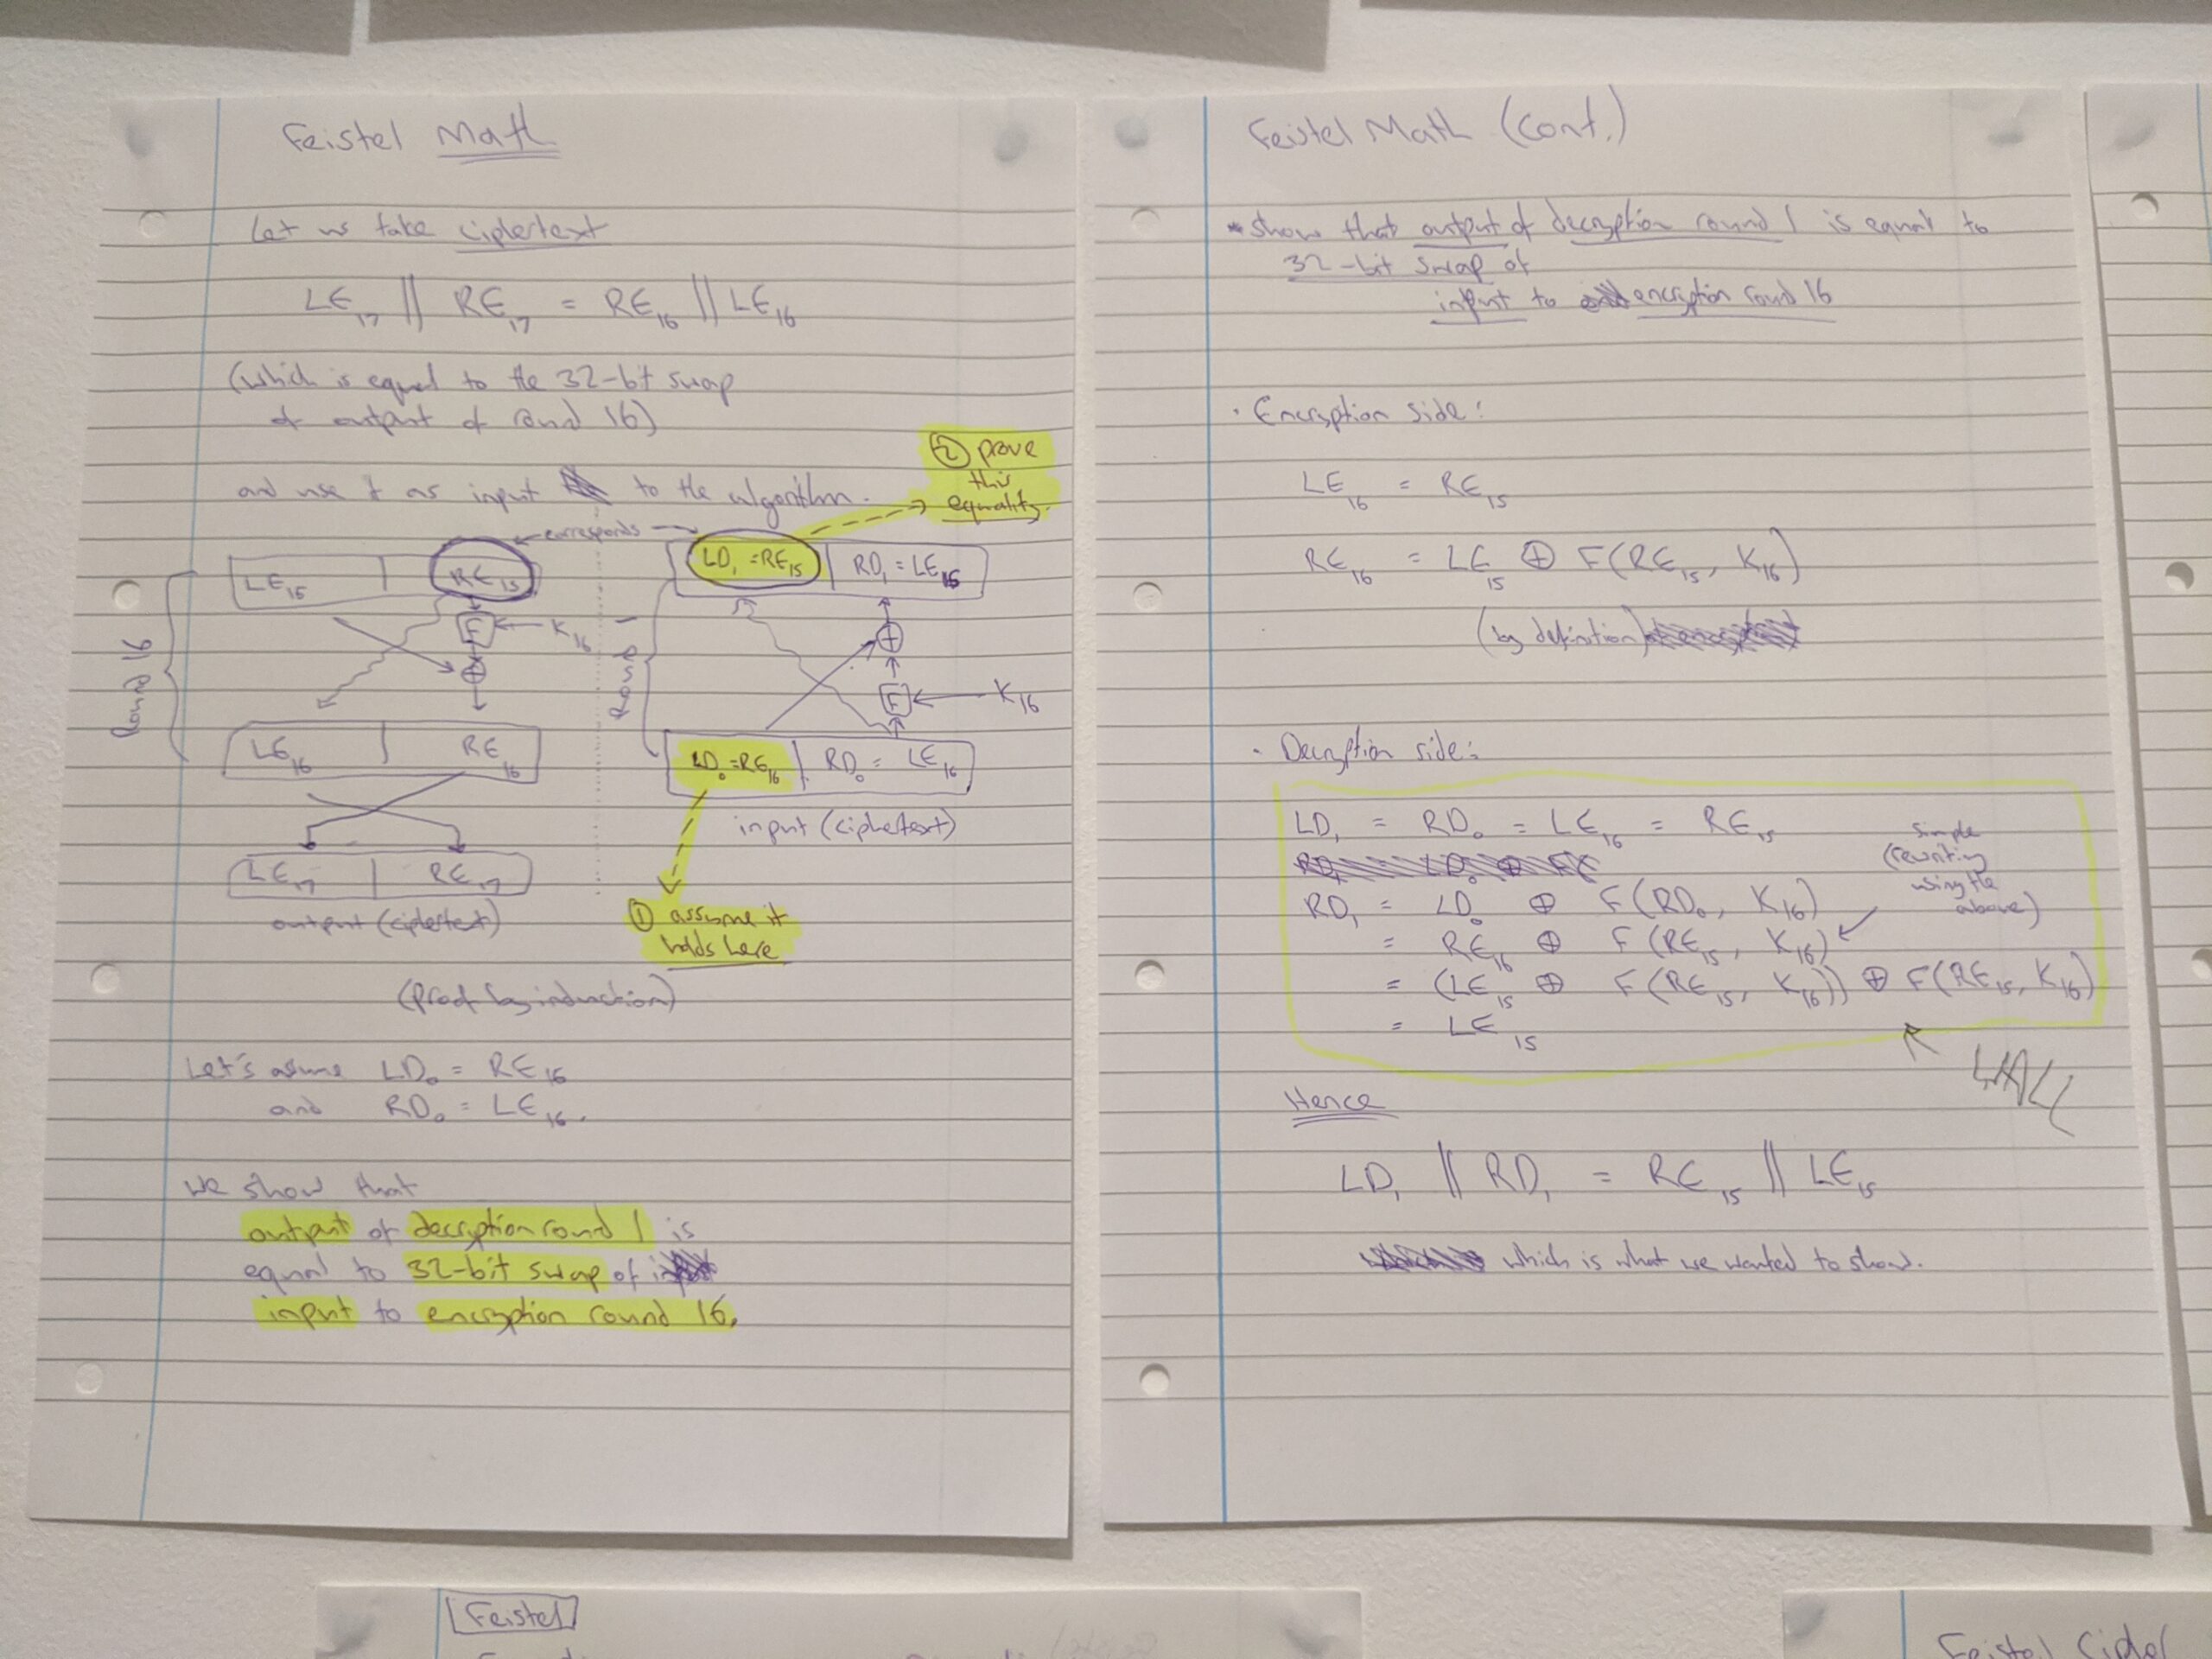 Feistel Math
Let us take ciphertext
LE₁₇ || RE₁₇ = RE₁₆ || LE₁₆
(which is equal to the 32-bit swap
of output of round 16)
and use it as input to the algorithm.
② prove
this
equality.
corresponds
LE₁₅ | RE₁₅
LD₁ = RE₁₅ | RD₁ = LE₁₅
F
K₁₆
Round 16
Round 1
F
K₁₆
LE₁₆ | RE₁₆
LD₀ = RE₁₆ | RD₀ = LE₁₆
input (ciphertext)
LE₁₇ | RE₁₇
output (ciphertext)
① assume it
holds here
(proof by induction)
Let's asume LD₀ = RE₁₆
and RD₀ = LE₁₆.
we show that
output of decryption round 1 is
equal to 32-bit swap of
input to encryption round 16.
Feistel Math (cont.)
* show that output of decryption round 1 is equal to
32-bit swap of
input to encryption round 16
· Encryption side:
LE₁₆ = RE₁₅
RE₁₆ = LE₁₅ ⊕ F(RE₁₅, K₁₆)
(by definition)
· Decryption side:
LD₁ = RD₀ = LE₁₆ = RE₁₅
RD₁ = LD₀ ⊕ F(RD₀, K₁₆)
= RE₁₆ ⊕ F(RE₁₅, K₁₆)
= (LE₁₅ ⊕ F(RE₁₅, K₁₆)) ⊕ F(RE₁₅, K₁₆)
= LE₁₅
simple
(rewriting
using the
above)
Hence
LD₁ || RD₁ = RE₁₅ || LE₁₅
which is what we wanted to show.
Feistel
Feistel